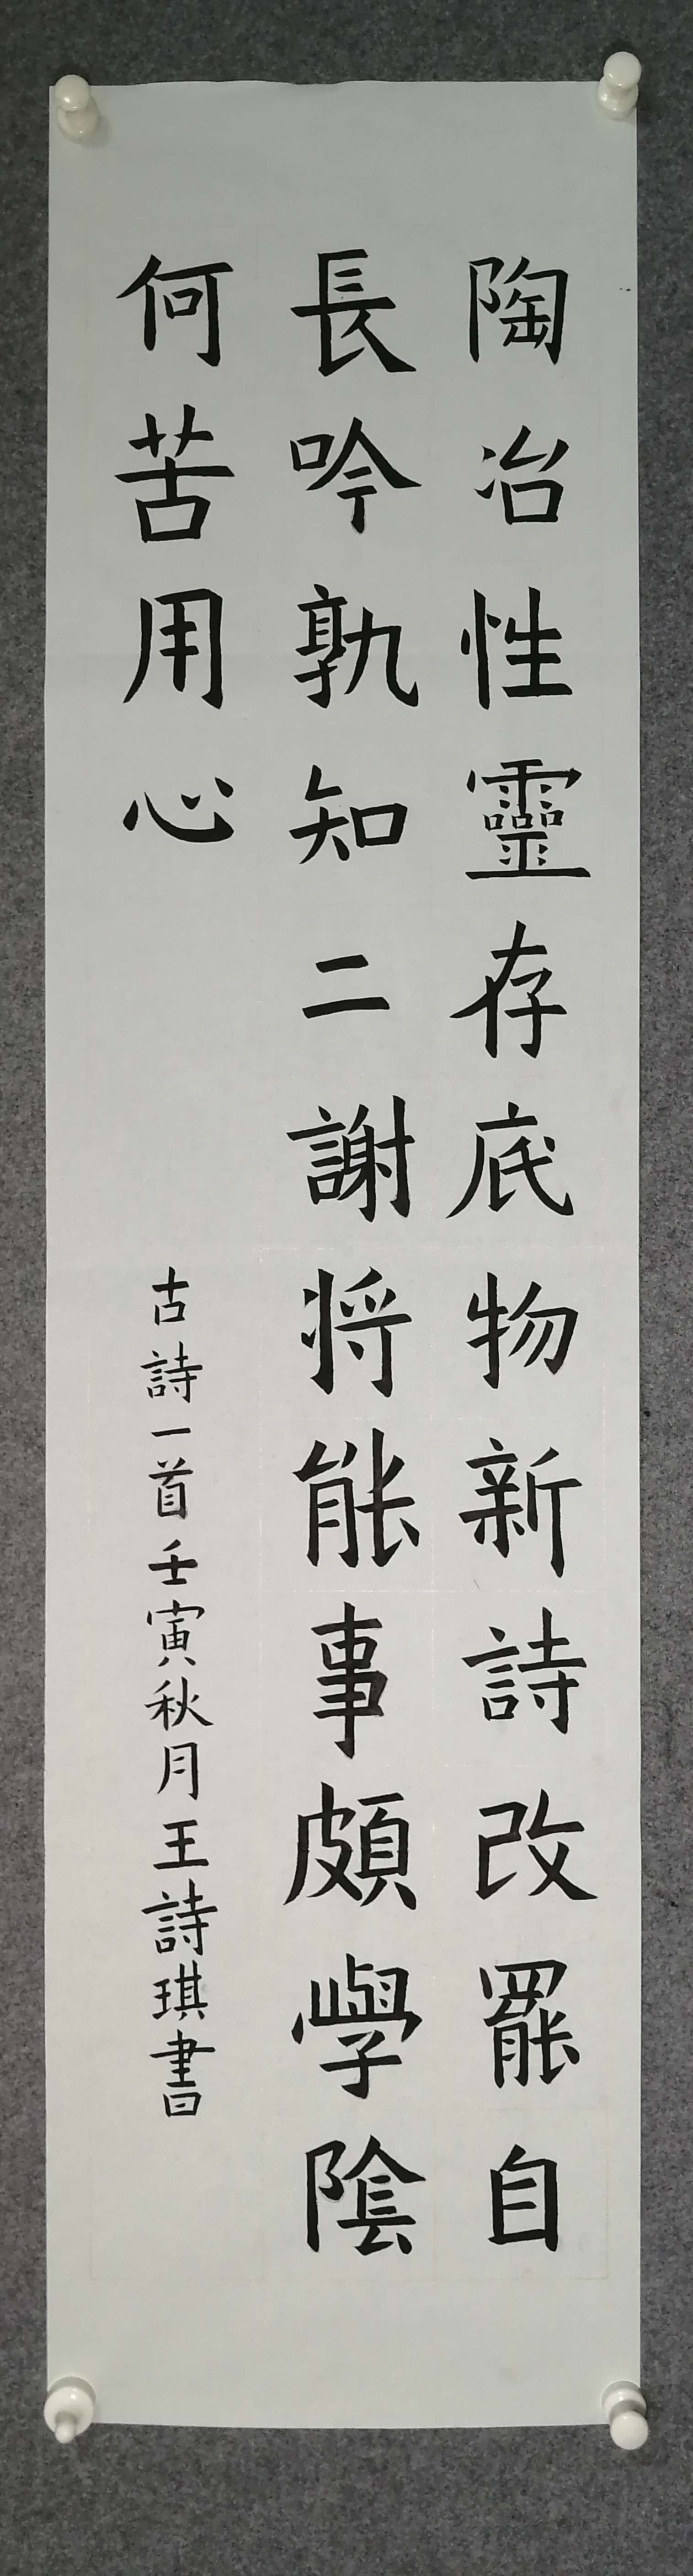 陶冶性靈存底物新詩改罷自
長吟孰知二謝将能事頗學陰
何苦用心
古詩一首壬寅秋月王詩琪書